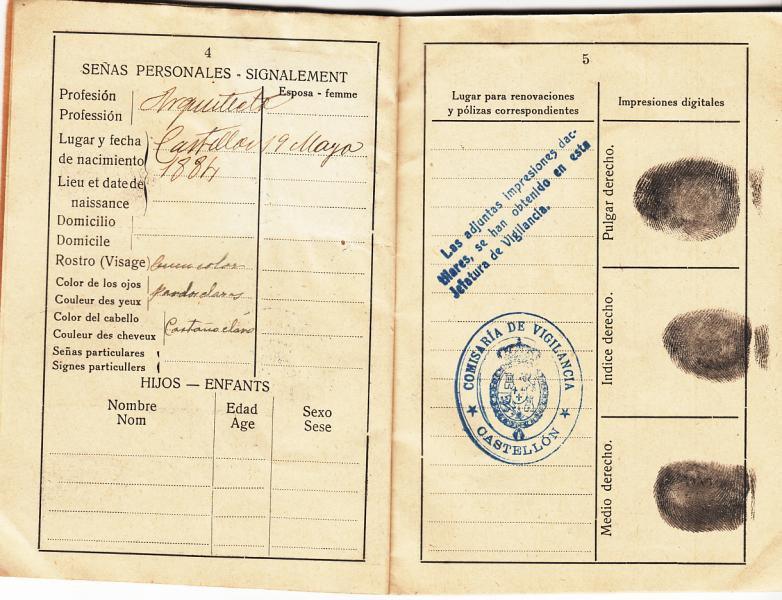 4
SEÑAS PERSONALES - SIGNALEMENT
Profesión
Profession
Arquitecto
Esposa - femme
Lugar y fecha
de nacimiento
Castellon 19 Mayo
1884
Lieu et date de
naissance
Domicilio
Domicile
Rostro (Visage) buen color
Color de los ojos
Couleur des yeux
pardo claros
Color del cabello
Couleur des cheveux
Castaño claro
Señas particulares
Signes particullers
HIJOS — ENFANTS
Nombre
Nom
Edad
Age
Sexo
Sese
5
Lugar para renovaciones
y pólizas correspondientes
Impresiones digitales
Las adjuntas impresiones dac-
tilares, se han obtenido en esta
Jefatura de Vigilancia.
COMISARÍA DE VIGILANCIA
★ CASTELLÓN ★
Pulgar derecho.
Indice derecho.
Medio derecho.